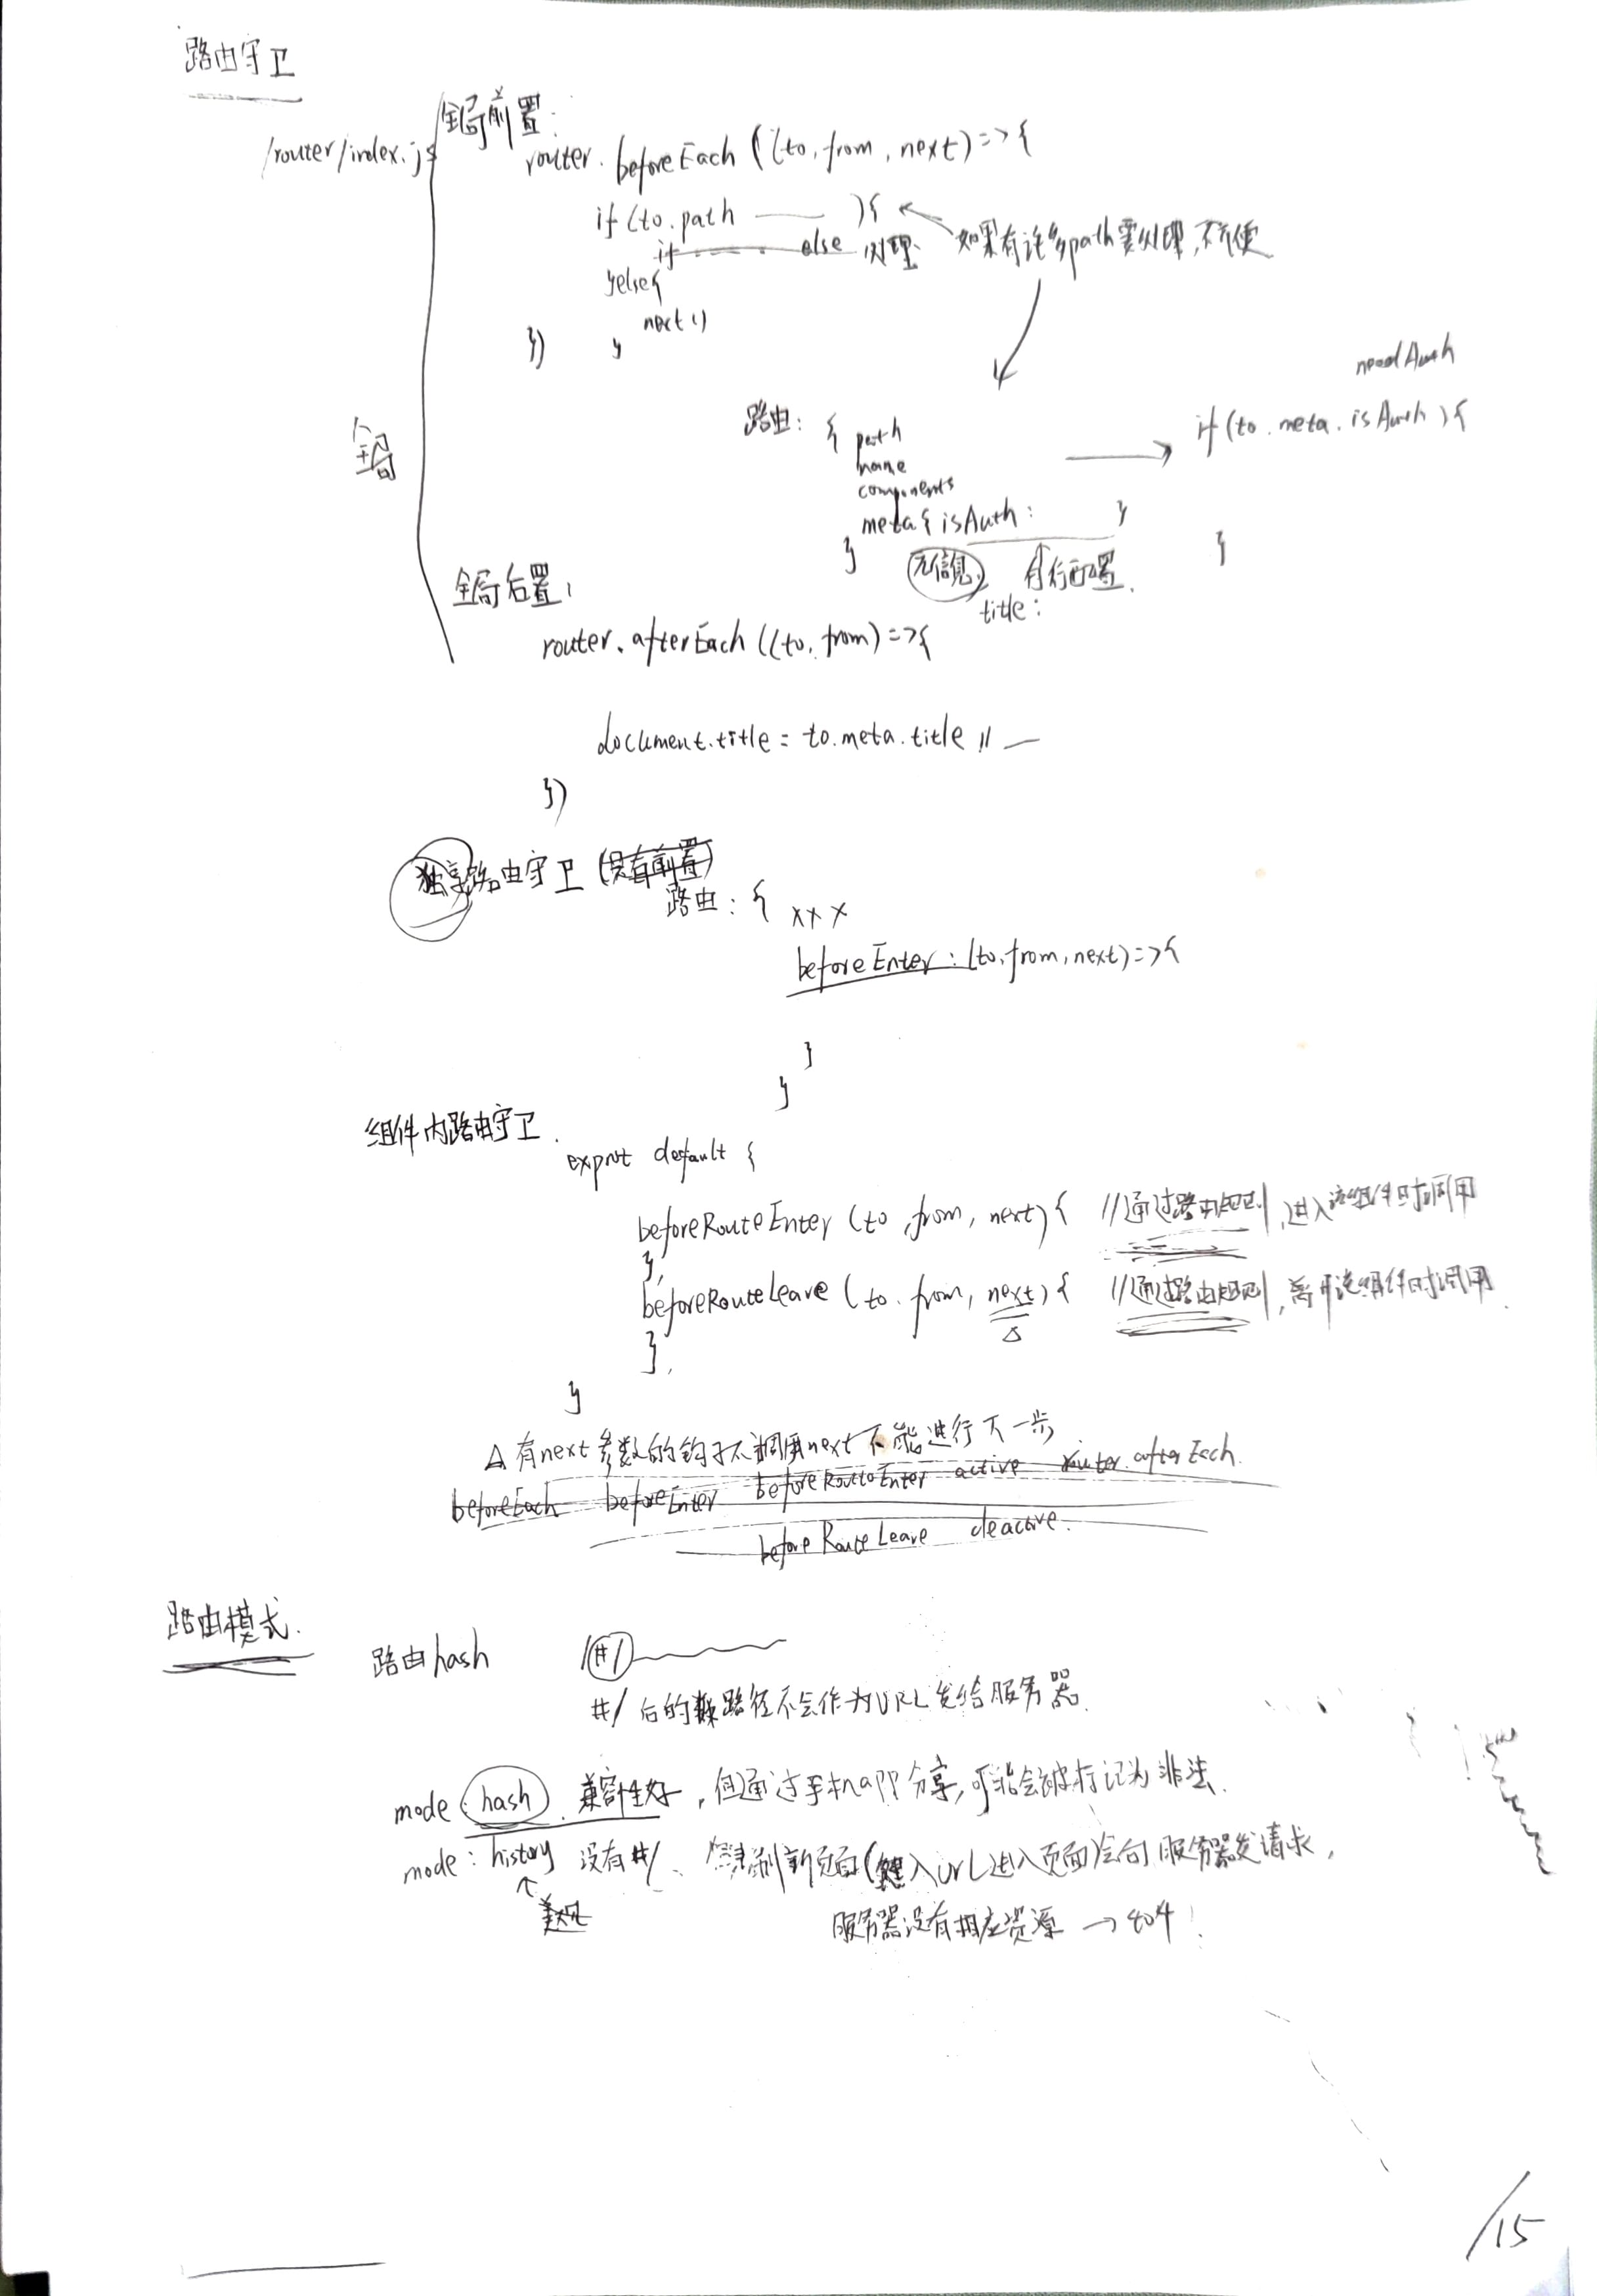 路由守卫
/router/index.js
全局前置:
router.beforeEach((to,from,next)=>{
if(to.path —— ){
if —— else 处理
如果有许多path要处理,不方便
}else{
next()
}
})
全局
needAuth
路由: {
path
name
components
meta{ isAuth: }
}
if(to.meta.isAuth){
}
元信息
自行配置.
title:
全局后置:
router.afterEach((to,from)=>{
document.title = to.meta.title || —
})
独享路由守卫 (只有前置)
路由: {
xxx
beforeEnter:(to,from,next)=>{
}
}
组件内路由守卫.
export default {
beforeRouteEnter (to,from,next){ //通过路由规则,进入该组件时调用
},
beforeRouteLeave (to.from,next){ //通过路由规则,离开该组件时调用.
△
},
}
△ 有next参数的钩子不调用next不能进行下一步
beforeEach beforeEnter beforeRouteEnter active router.afterEach.
beforeRouteLeave deactive.
路由模式.
路由hash /#/
#/ 后的路径不会作为URL发给服务器.
mode: hash. 兼容性好,但通过手机app分享,可能会被标记为非法.
mode: history 没有#/、刷新页面(键入URL进入页面)会向服务器发请求,
↑
美观
服务器没有相应资源 → 404!
/15